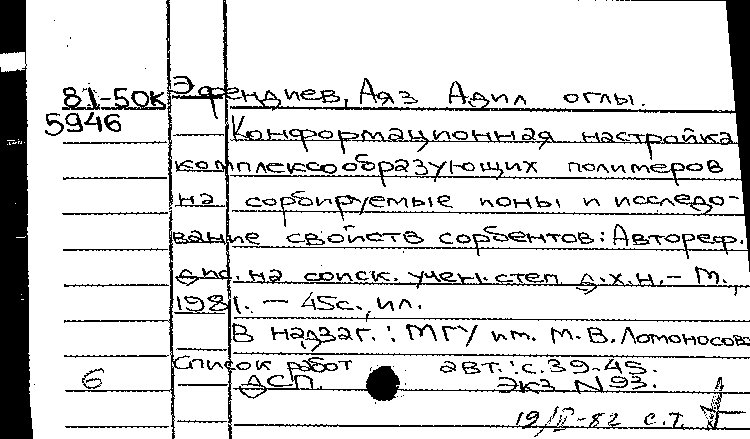 81-50к Эфендиев, Аяз Адил оглы.
5946 Конформационная настройка
комплексообразующих полимеров
на сорбируемые ионы и исследо-
вание свойств сорбентов: Автореф.
дис. на соиск. учен. степ. д.х.н. - М.,
1981. - 45с., ил.
В надзаг.: МГУ им. М.В. Ломоносова
Список работ авт.: с. 39-45.
6 ДСП. Экз N 93.
19/II-82 с.т.